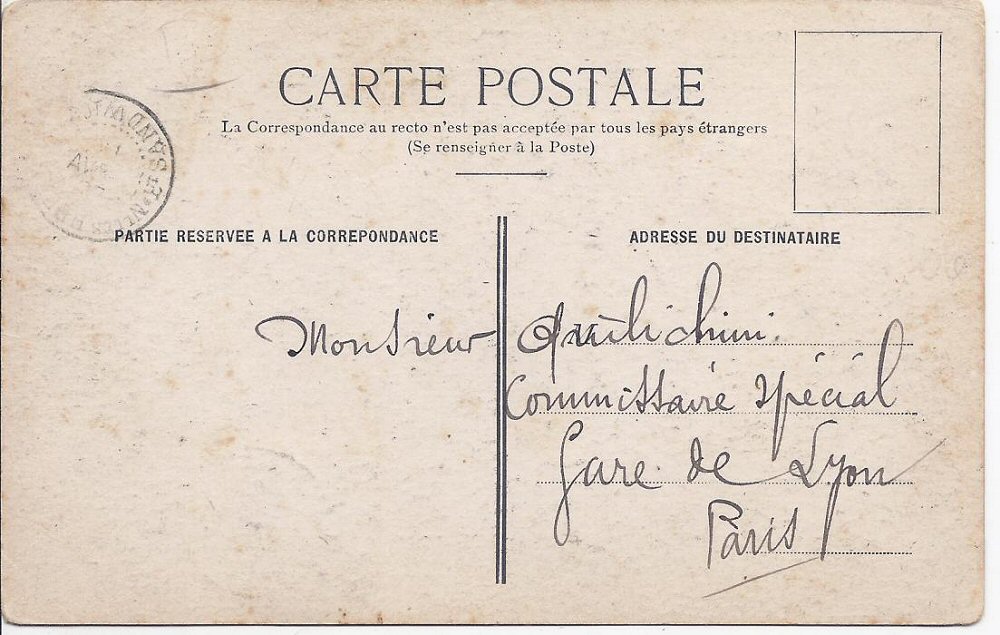 CARTE POSTALE
La Correspondance au recto n'est pas acceptée par tous les pays étrangers
(Se renseigner à la Poste)
PARTIE RESERVEE A LA CORREPONDANCE
ADRESSE DU DESTINATAIRE
Monsieur Quilichini.
Commissaire Spécial
Gare de Lyon
Paris
PORT SANDWICH